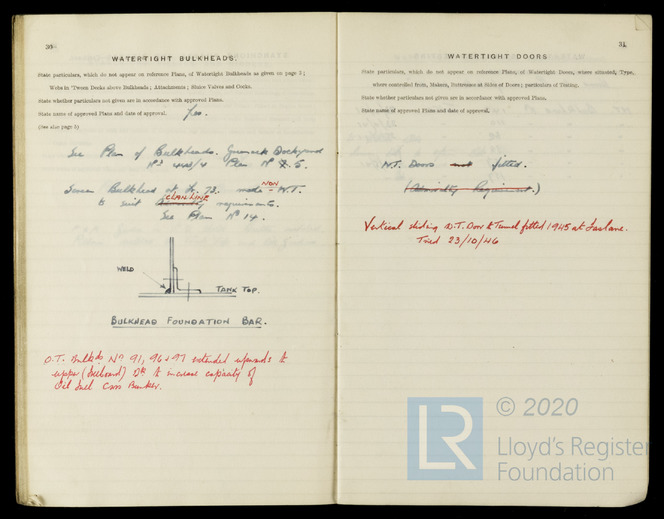 30
WATERTIGHT BULKHEADS.
State particulars, which do not appear on reference Plans, of Watertight Bulkheads as given on page 5;
Webs in 'Tween Decks above Bulkheads; Attachments; Sluice Valves and Cocks.
State whether particulars not given are in accordance with approved Plans.
State name of approved Plans and date of approval. Yes.
(See also page 5)
See Plan of Bulkheads. Greenock Dockyard
Plan Nº
Screen Bulkhead at fr. 73. made NON W.T.
to suit CLAN LINE requirements.
See Plan Nº 14.
WELD
TANK TOP.
BULKHEAD FOUNDATION BAR.
O.T. Bulkds Nº 91, 96 & 97 extended upwards to
upper (freeboard) Dk to increase capacity of
Oil fuel Cross Bunker.
31
WATERTIGHT DOORS
State particulars, which do not appear on reference Plans, of Watertight Doors, where situated, Type,
where controlled from, Makers, Scantlings at Sides of Doors; particulars of Testing.
State whether particulars not given are in accordance with approved Plans.
State name of approved Plans and date of approval.
W.T. Doors not fitted.
(Admiralty Requirement.)
Vertical sliding W.T. Door to Tunnel fitted 1945 at Faslane.
Tried 23/10/46
LR
© 2020
Lloyd's Register
Foundation